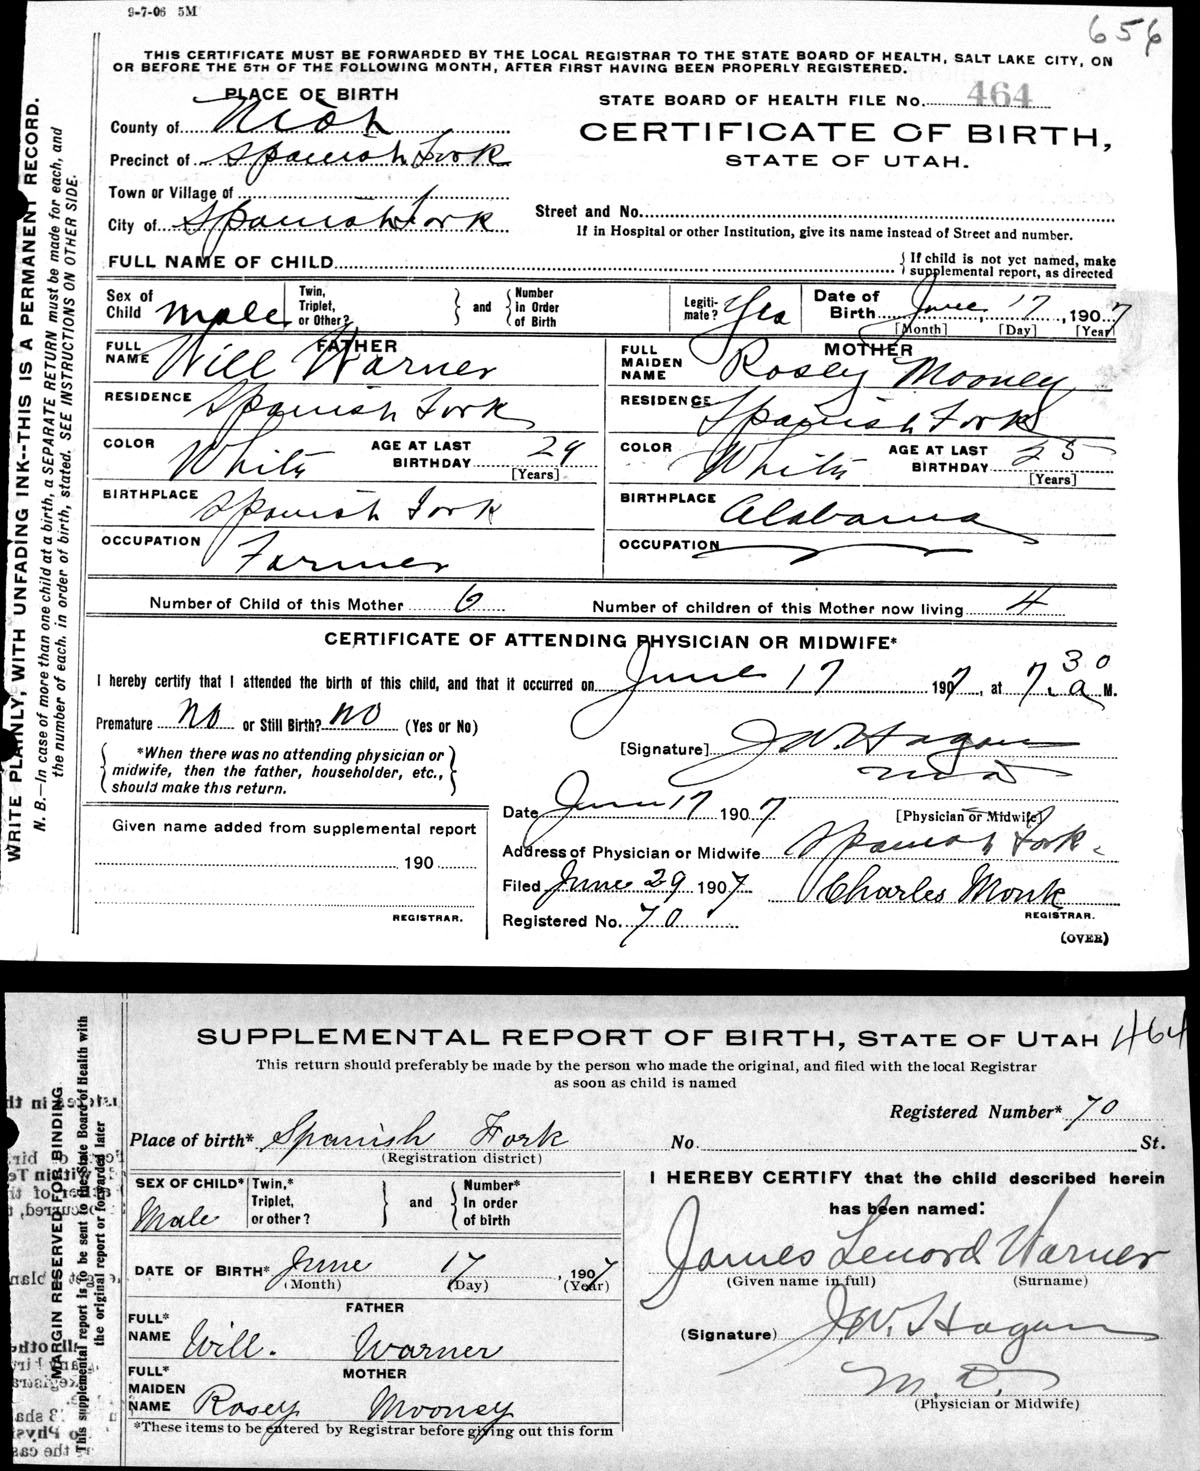 9-7-06 5M
656
THIS CERTIFICATE MUST BE FORWARDED BY THE LOCAL REGISTRAR TO THE STATE BOARD OF HEALTH, SALT LAKE CITY, ON
OR BEFORE THE 5TH OF THE FOLLOWING MONTH, AFTER FIRST HAVING BEEN PROPERLY REGISTERED.
PLACE OF BIRTH
STATE BOARD OF HEALTH FILE No. 464
County of Utah
CERTIFICATE OF BIRTH,
Precinct of Spanish Fork
STATE OF UTAH.
Town or Village of
City of Spanish Fork
Street and No.
If in Hospital or other Institution, give its name instead of Street and number.
FULL NAME OF CHILD
{ If child is not yet named, make
supplemental report, as directed
Sex of Child Male
Twin, Triplet, or Other? } and { Number in Order of Birth
Legiti-mate? Yes
Date of Birth June 17, 1907
[Month] [Day] [Year]
FATHER
FULL NAME Will Warner
RESIDENCE Spanish Fork
COLOR White AGE AT LAST BIRTHDAY 29
[Years]
BIRTHPLACE Spanish Fork
OCCUPATION Farmer
MOTHER
FULL MAIDEN NAME Rosey Mooney
RESIDENCE Spanish Fork
COLOR White AGE AT LAST BIRTHDAY 25
[Years]
BIRTHPLACE Alabama
OCCUPATION
Number of Child of this Mother 6 Number of children of this Mother now living 4
CERTIFICATE OF ATTENDING PHYSICIAN OR MIDWIFE*
I hereby certify that I attended the birth of this child, and that it occurred on June 17 1907, at 7.30 a M.
Premature no or Still Birth? no (Yes or No)
{ *When there was no attending physician or
midwife, then the father, householder, etc.,
should make this return. }
[Signature] J.W. Hagan
M D
Date June 17 1907 [Physician or Midwife]
Address of Physician or Midwife Spanish Fork.
Filed June 29 1907 Charles Monk
REGISTRAR.
Registered No. 70
(OVER)
Given name added from supplemental report
190
REGISTRAR.
WRITE PLAINLY, WITH UNFADING INK--THIS IS A PERMANENT RECORD.
N. B.—In case of more than one child at a birth, a SEPARATE RETURN must be made for each, and
the number of each, in order of birth, stated. SEE INSTRUCTIONS ON OTHER SIDE.
SUPPLEMENTAL REPORT OF BIRTH, STATE OF UTAH 464
This return should preferably be made by the person who made the original, and filed with the local Registrar
as soon as child is named
Registered Number* 70
Place of birth* Spanish Fork No. St.
(Registration district)
SEX OF CHILD* Male
Twin,* Triplet, or other? } and { Number* In order of birth
DATE OF BIRTH* June 17, 1907
(Month) (Day) (Year)
FATHER
FULL* NAME Will. Warner
MOTHER
FULL* MAIDEN NAME Rosey Mooney
*These items to be entered by Registrar before giving out this form
I HEREBY CERTIFY that the child described herein
has been named:
James Lenord Warner
(Given name in full) (Surname)
(Signature) J.W. Hagan
M. D.
(Physician or Midwife)
MARGIN RESERVED FOR BINDING
This supplemental report is to be sent to the State Board of Health with
the original report or forwarded later